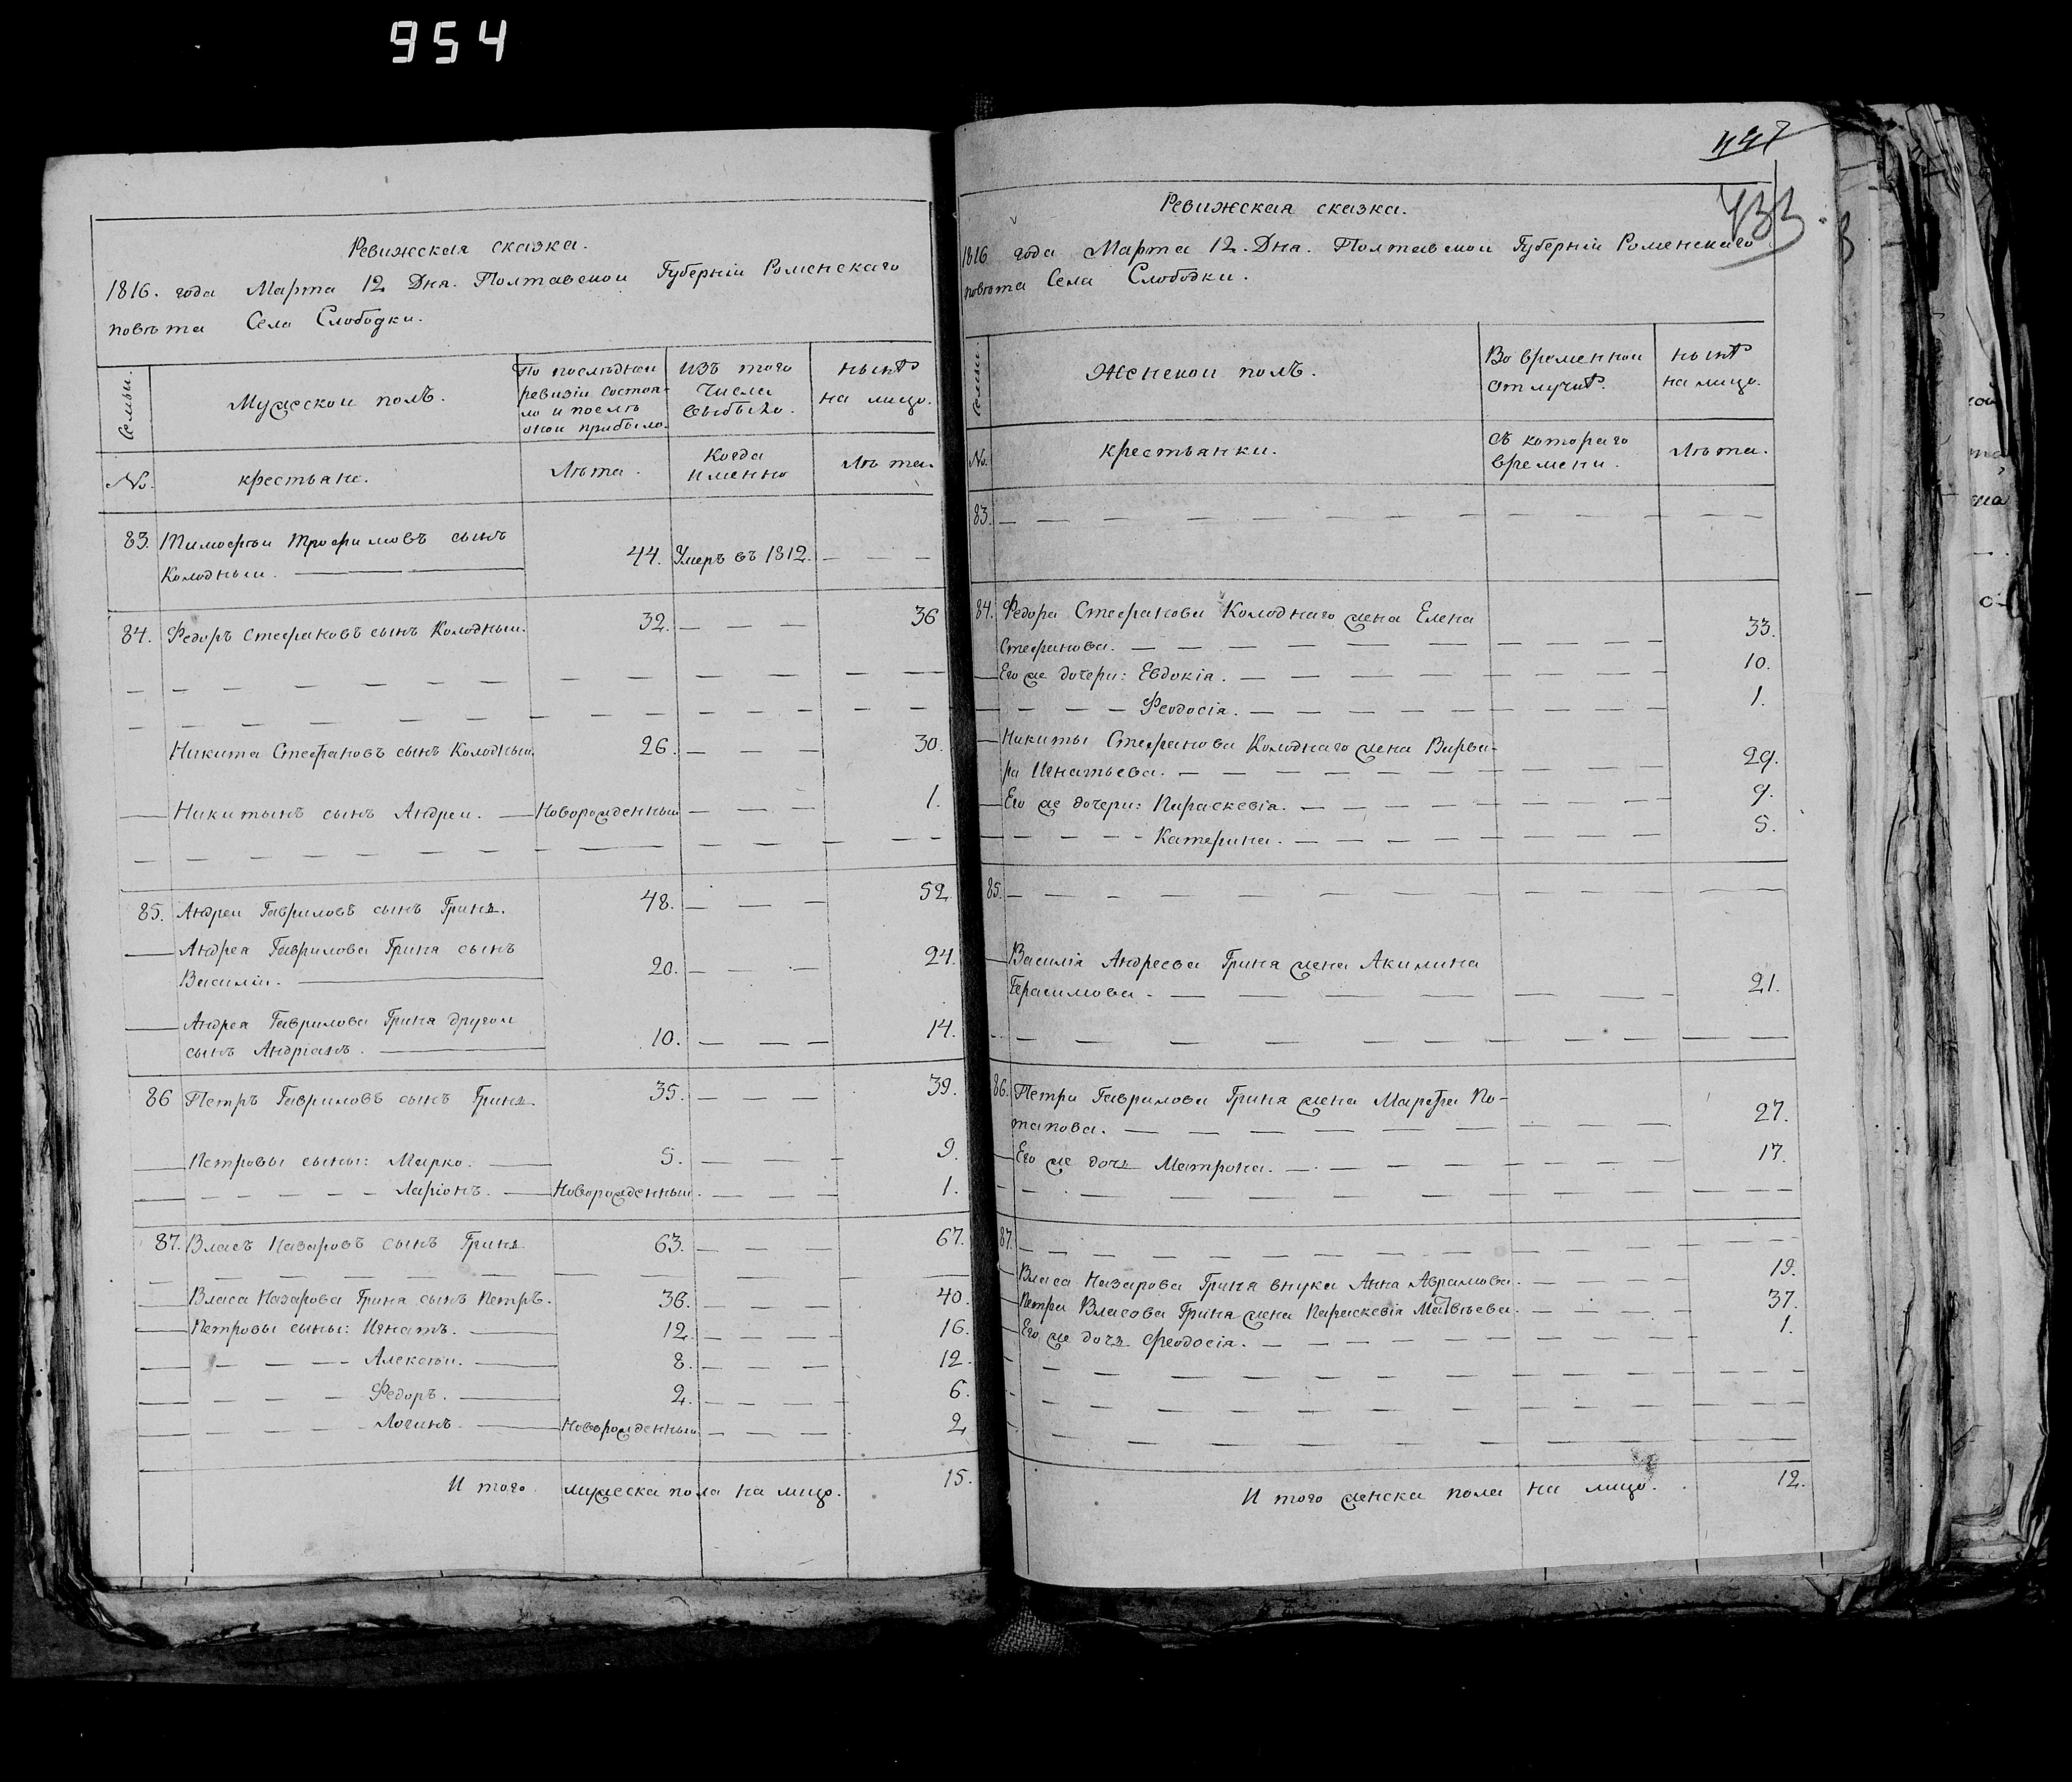 954
Ревижская сказка.
1816. года Марта 12 Дня. Полтавской Губернiи Роменскаго
повѣта Села Слободки.
Семьи.
Мужескои полъ.
По послѣднеи
ревизiи состоя-
ло и послѣ
онои прибыло.
изъ того
числа
выбыло.
нынѣ
на лицо.
№.
крестьяне.
Лѣта.
Когда
именно
Лѣта.
83. Тимофѣи Трофимовъ сынъ
Колодныи. 44. Умеръ въ 1812.
84. Федоръ Стефановъ сынъ Колодныи. 32. 36
Никита Стефановъ сынъ Колодныи. 26. 30.
Никитынъ сынъ Андреи. Новорожденныи 1.
85. Андреи Гавриловъ сынъ Гринь. 48. 52
Андрея Гаврилова Гриня сынъ
Василiи. 20. 24.
Андрея Гаврилова Гриня другои
сынъ Андрiянъ. 10. 14.
86 Петръ Гавриловъ сынъ Гринь. 35. 39.
Петровы сыны: Марко. 5. 9.
Ларiонъ. Новорожденныи. 1.
87. Власъ Назаровъ сынъ Гринь 63. 67.
Власа Назарова Гриня сынъ Петръ. 36. 40.
Петровы сыны: Игнатъ. 12. 16.
Алексѣи. 8. 12.
Федоръ. 2. 6.
Логинъ. Новорожденныи 2
И того мужеска пола на лицо. 15.
447
433
Ревижская сказка.
1816 года Марта 12. Дня. Полтавскои Губернiи Роменскаго
повѣта Села Слободки.
Семьи.
Женскои полъ.
Во временнои
отлучкѣ.
нынѣ
на лицо.
№.
крестьянки.
съ котораго
времени.
Лѣта.
83.
84. Федора Стефанова Колоднаго жена Елена
Стефанова. 33.
Его же дочери: Евдокiя. 10.
Феодосiя. 1.
Никиты Стефанова Колоднаго жена Варва-
ра Игнатьева. 29.
Его же дочери: Параскевiя. 9.
Катерина. 5.
85.
Василiя Андреева Гриня жена Акилина
Герасимова. 21.
86. Петра Гаврилова Гриня жена Марфа По-
тапова. 27.
Его же дочь Матрона. 17.
87.
Власа Назарова Гриня внука Анна Аврамова. 19.
Петра Власова Гриня жена Параскевiя Матвѣева. 37.
Его же дочь Феодосiя. 1.
И того женска пола на лицо. 12.